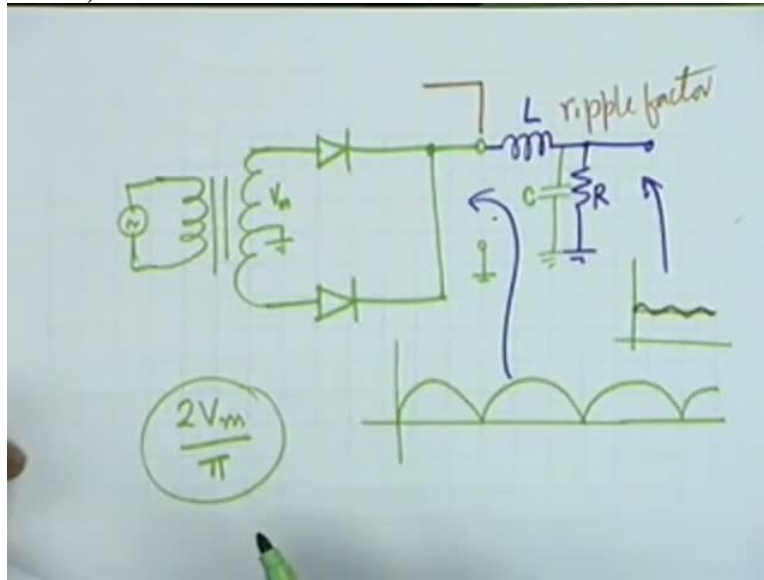 L ripple factor
Vm
C
R
2Vm
π